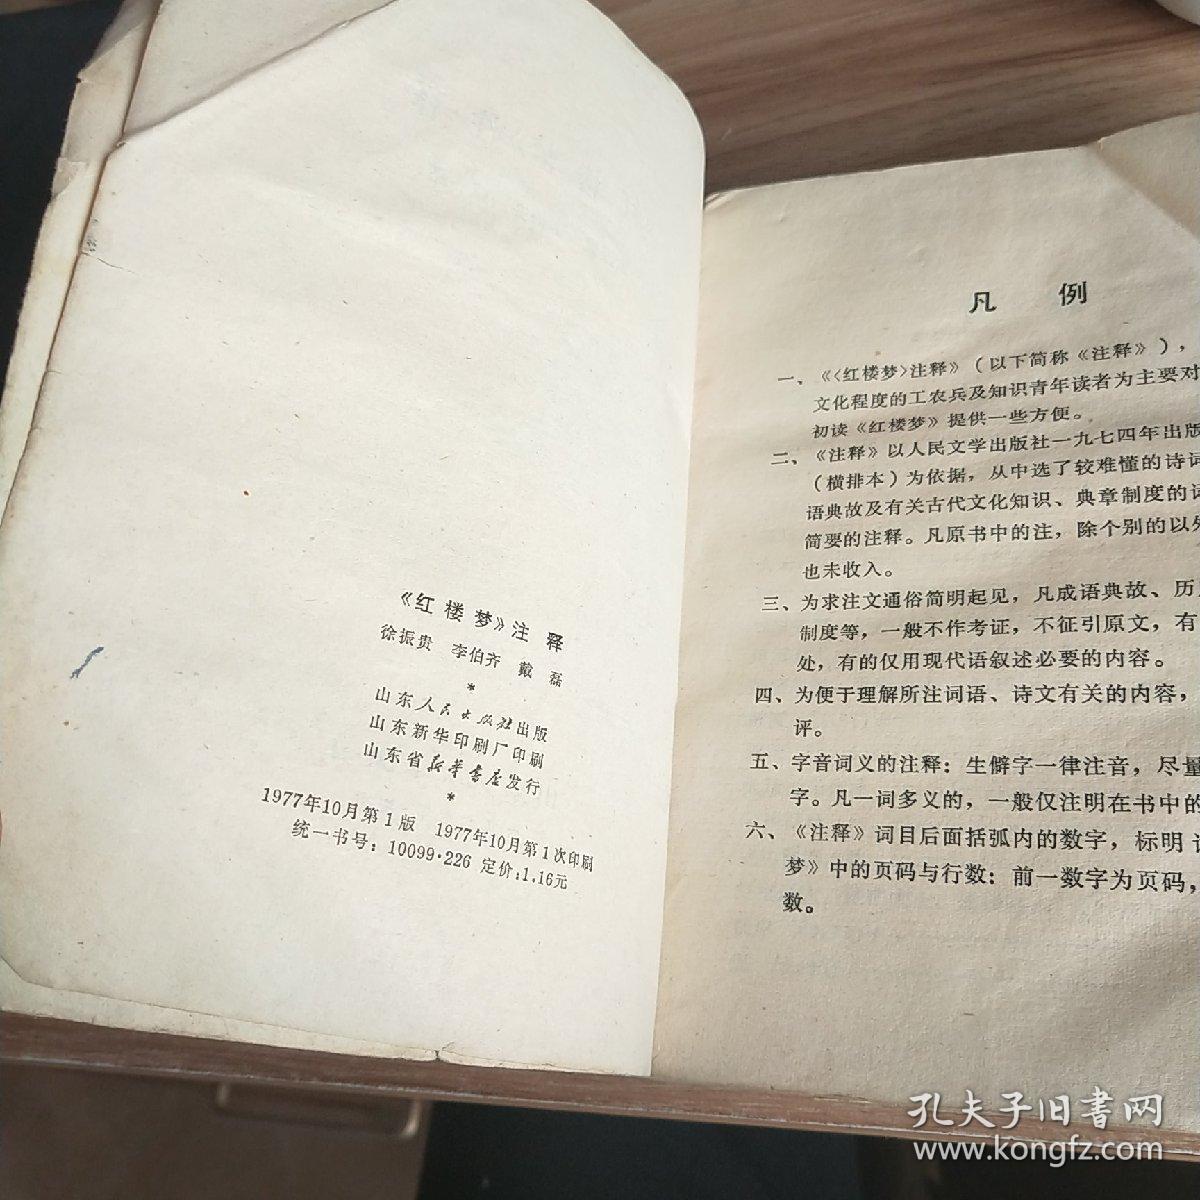 《红楼梦》注释
徐振贵 李伯齐 戴磊
*
山东人民出版社出版
山东新华印刷厂印刷
山东省新华书店发行
*
1977年10月第1版 1977年10月第1次印刷
统一书号：10099·226 定价：1.16元
凡 例
一、《〈红楼梦〉注释》（以下简称《注释》），
文化程度的工农兵及知识青年读者为主要对
初读《红楼梦》提供一些方便。
二、《注释》以人民文学出版社一九七四年出版
（横排本）为依据，从中选了较难懂的诗词
语典故及有关古代文化知识、典章制度的词
简要的注释。凡原书中的注，除个别的以外
也未收入。
三、为求注文通俗简明起见，凡成语典故、历
制度等，一般不作考证，不征引原文，有
处，有的仅用现代语叙述必要的内容。
四、为便于理解所注词语、诗文有关的内容，
评。
五、字音词义的注释：生僻字一律注音，尽量
字。凡一词多义的，一般仅注明在书中的
六、《注释》词目后面括弧内的数字，标明
梦》中的页码与行数：前一数字为页码，
数。
孔夫子旧书网
www.kongfz.com